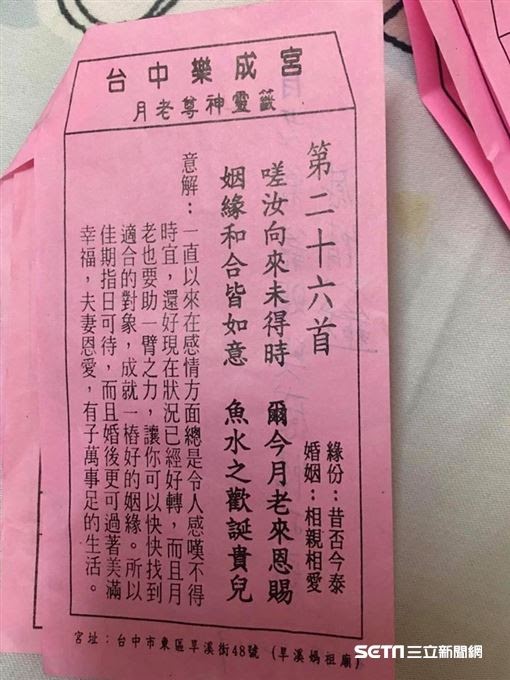 台中樂成宮
月老尊神靈籤
第二十六首
嗟汝向來未得時 爾今月老來恩賜
姻緣和合皆如意 魚水之歡誕貴兒
緣份：昔否今泰
婚姻：相親相愛
意解：一直以來在感情方面總是令人感嘆不得
時宜，還好現在狀況已經好轉，而且月
老也要助一臂之力，讓你可以快快找到
適合的對象，成就一樁好的姻緣。所以
佳期指日可待，而且婚後更可過著美滿
幸福，夫妻恩愛，有子萬事足的生活。
宮址：台中市東區旱溪街48號（旱溪媽祖廟）
SETN 三立新聞網